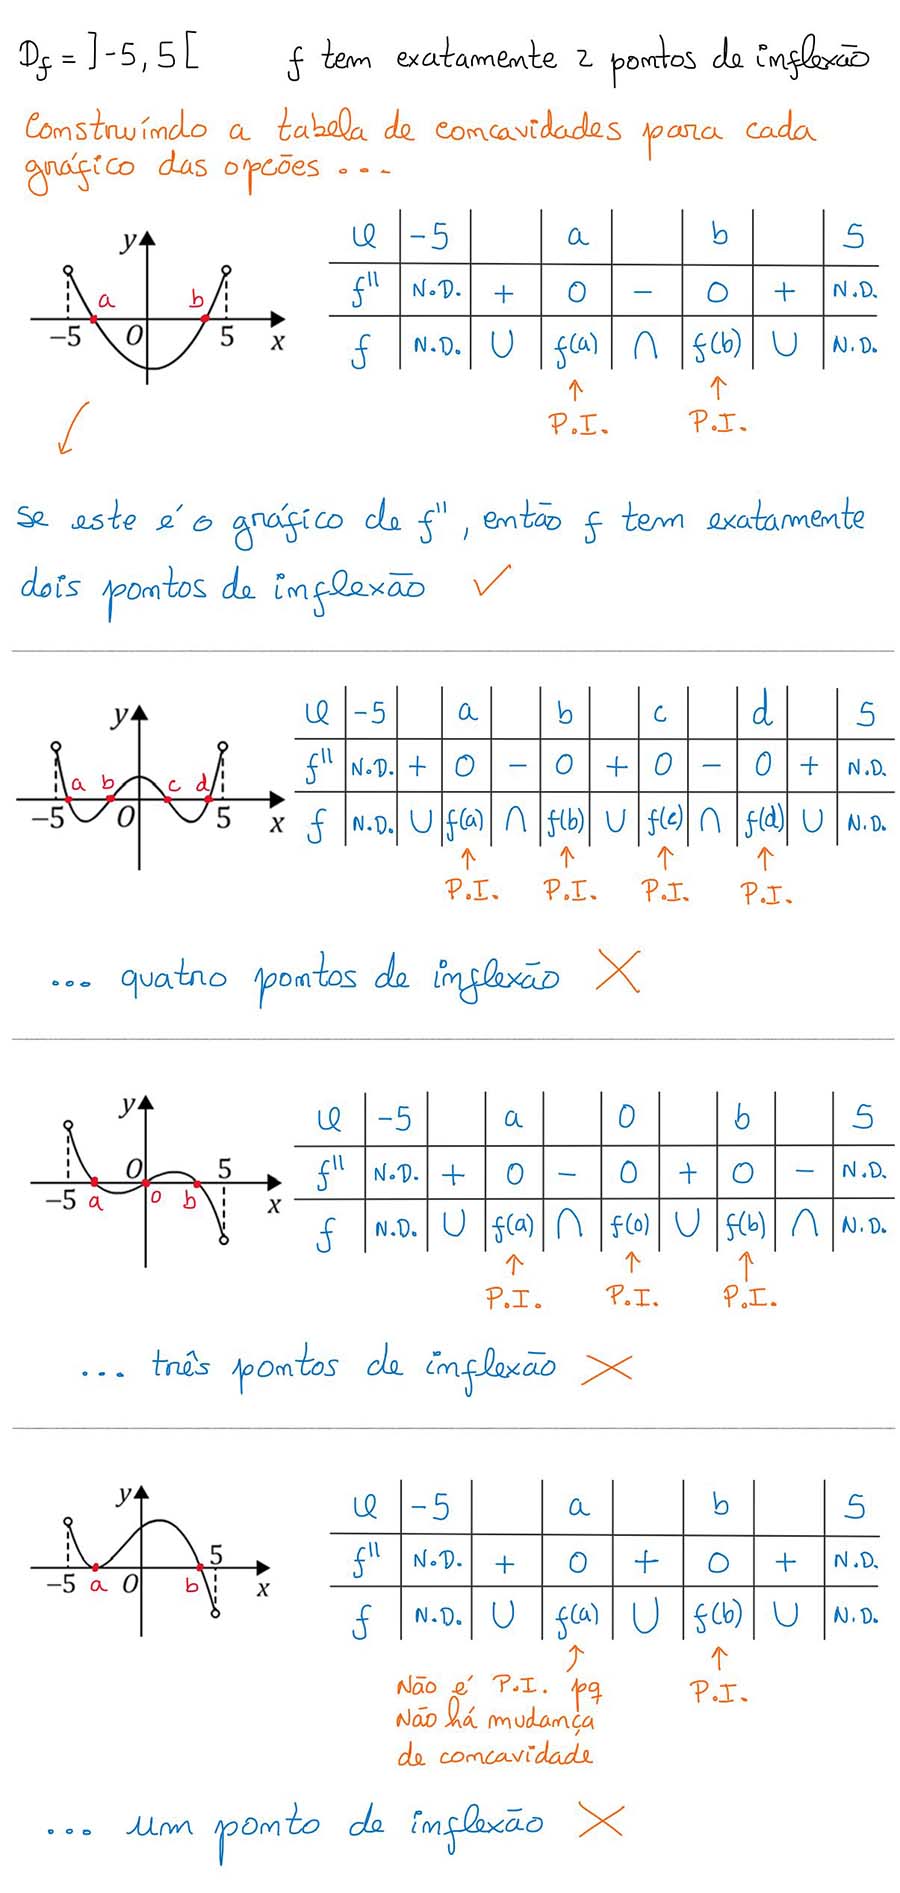 D_f = ]-5, 5[ f tem exatamente 2 pontos de inflexão
Construíndo a tabela de concavidades para cada
gráfico das opções ...
y
a b
-5 0 5 x
x -5 a b 5
f'' N.D. + 0 - 0 + N.D.
f N.D. ∪ f(a) ∩ f(b) ∪ N.D.
↑ ↑
P.I. P.I.
Se este é o gráfico de f'', então f tem exatamente
dois pontos de inflexão ✓
y
a b c d
-5 0 5 x
x -5 a b c d 5
f'' N.D. + 0 - 0 + 0 - 0 + N.D.
f N.D. ∪ f(a) ∩ f(b) ∪ f(c) ∩ f(d) ∪ N.D.
↑ ↑ ↑ ↑
P.I. P.I. P.I. P.I.
... quatro pontos de inflexão ✗
y
0 5
-5 a 0 b x
x -5 a 0 b 5
f'' N.D. + 0 - 0 + 0 - N.D.
f N.D. ∪ f(a) ∩ f(0) ∪ f(b) ∩ N.D.
↑ ↑ ↑
P.I. P.I. P.I.
... três pontos de inflexão ✗
y
5
-5 a 0 b x
x -5 a b 5
f'' N.D. + 0 + 0 + N.D.
f N.D. ∪ f(a) ∪ f(b) ∪ N.D.
↑ ↑
Não é P.I. pq P.I.
Não há mudança
de concavidade
... um ponto de inflexão ✗